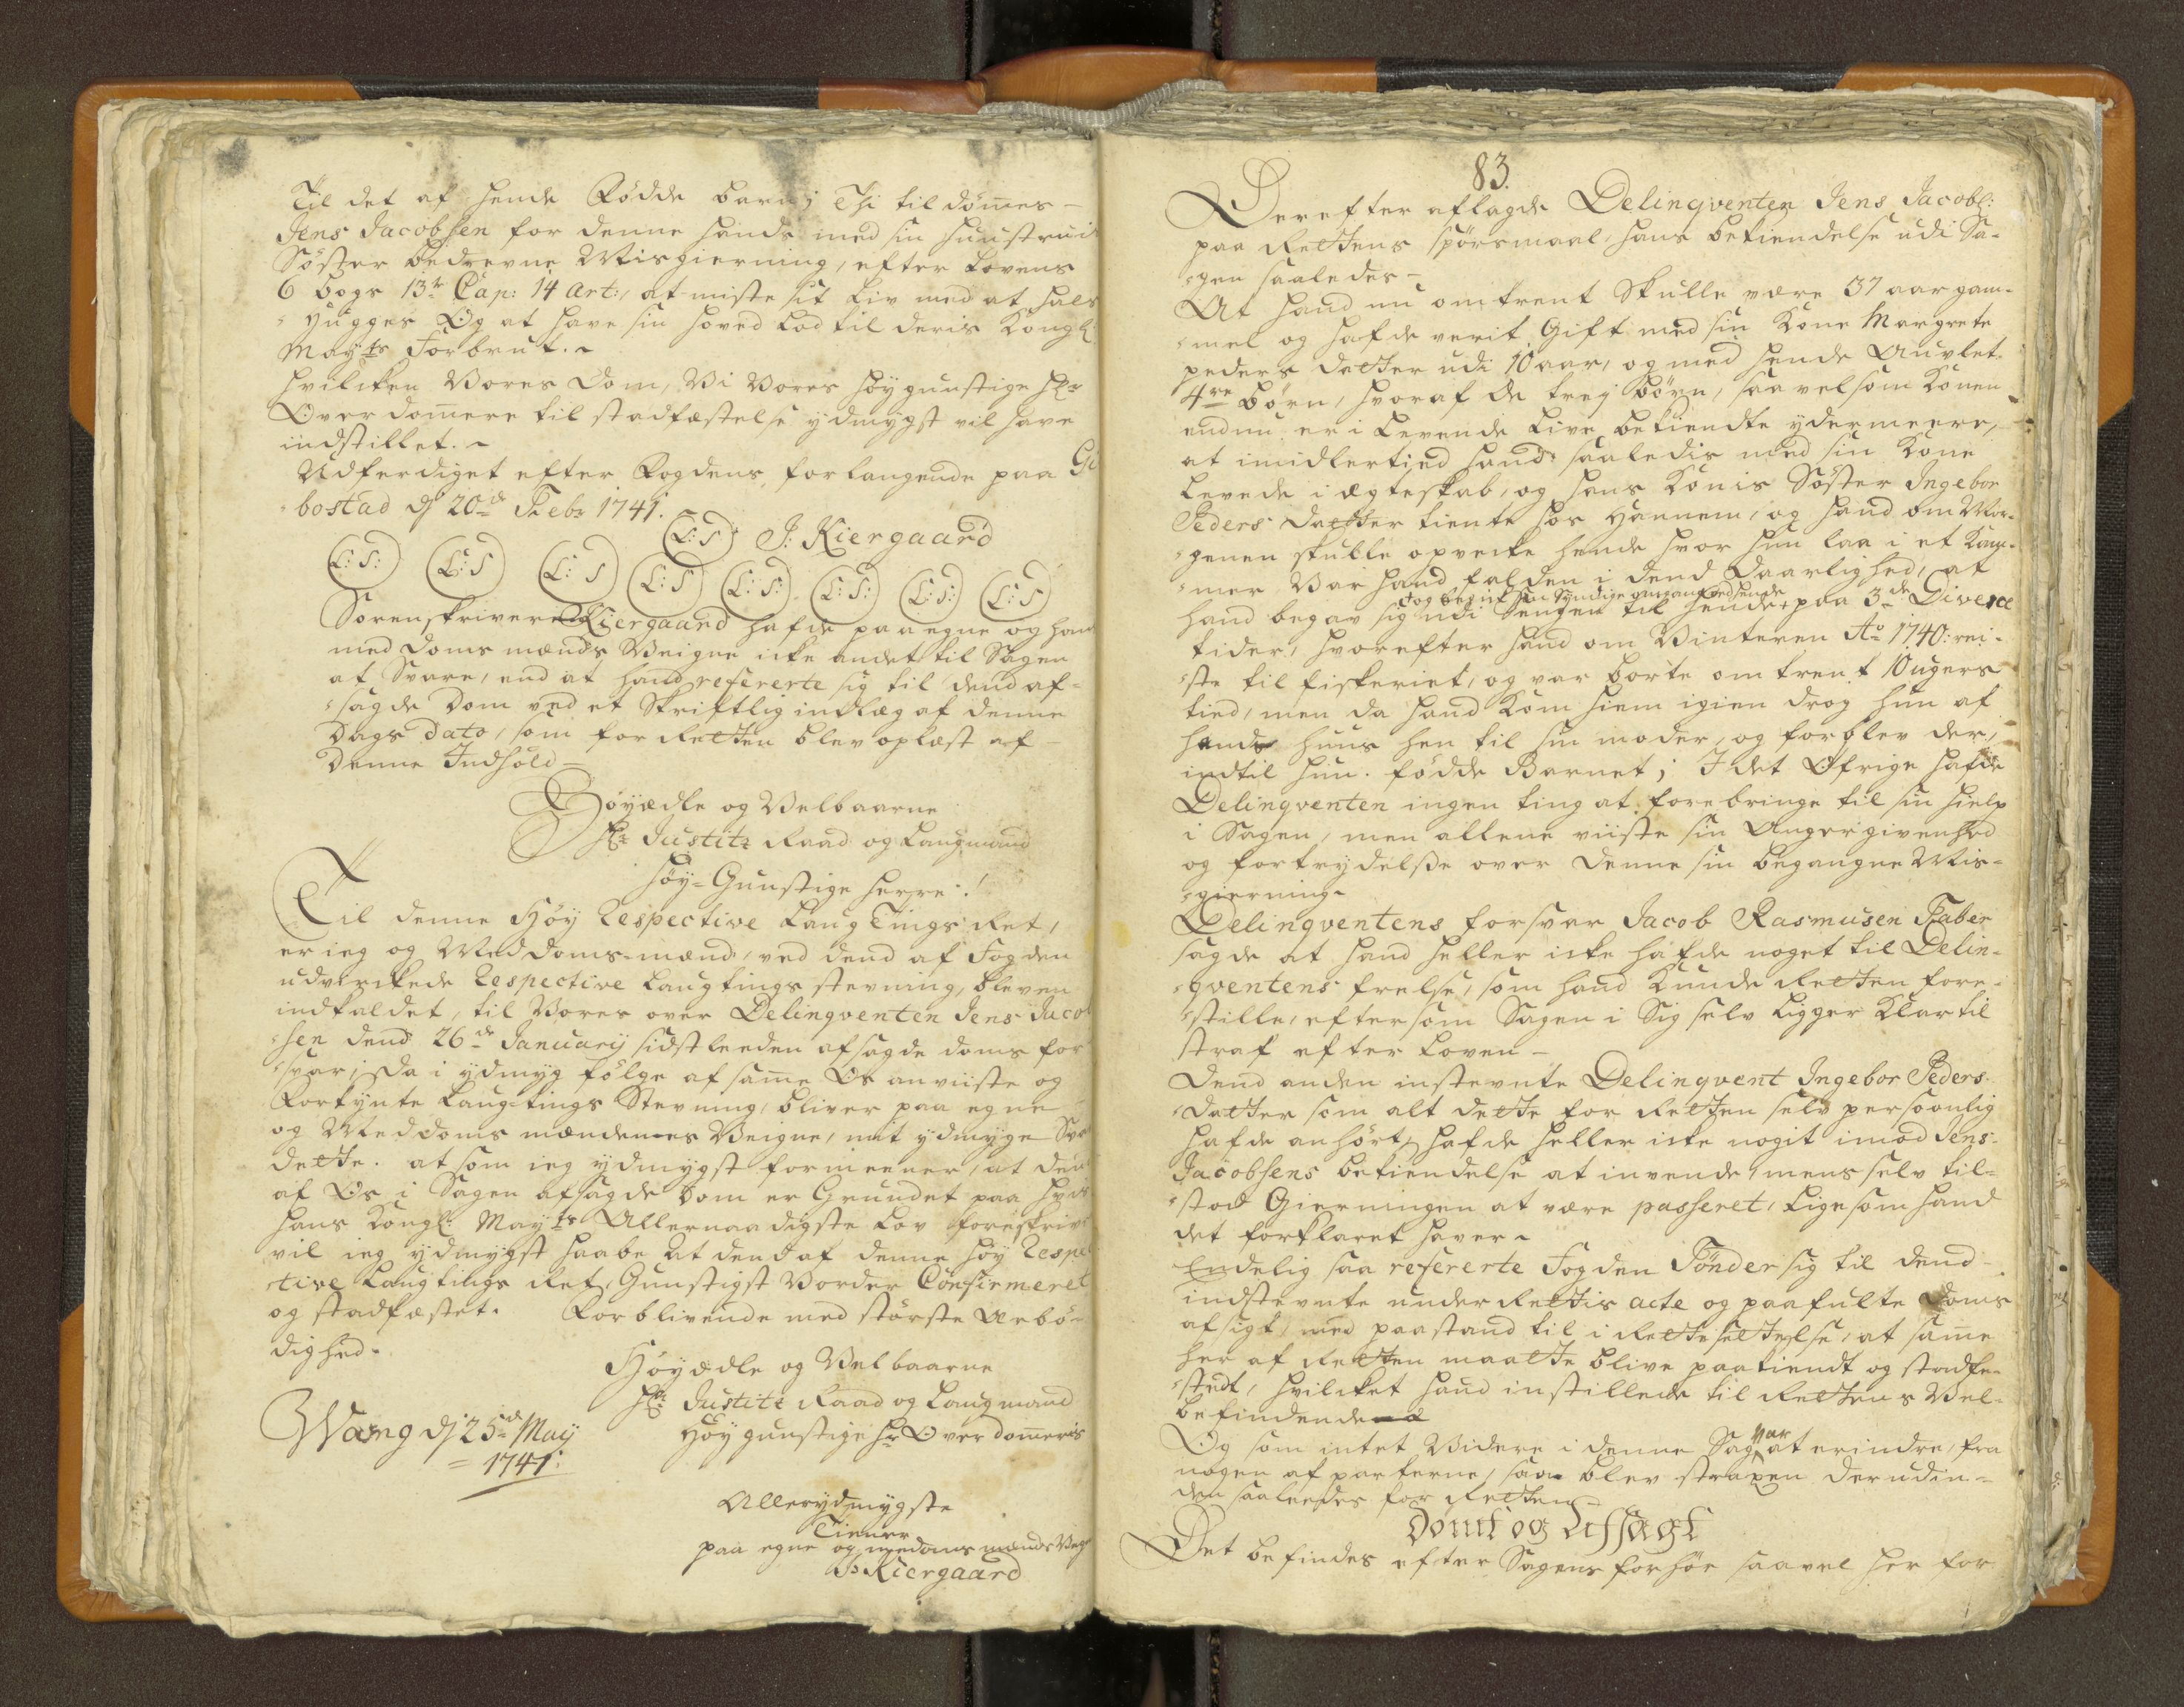 Til det af hende Födde barn; Thi tildömes
Jens Jacobsen for denne hands med sin huustrues
Söster bedrevne Misgierning, efter Lovens
6 bogs 13te Cap: 14 Art:, at miste sit Liv med at hals
hugges Og at have sin hoved Lod til deris Kongl:
Mayts Forbrut.
Hvilcken Vores Dom, Vi Vores höygunstige Hr
Over domere til stadfæstelse ydmygst vil have
indstillet.
Udferdiget efter Fogdens forlangende paa Gi
bostad dj 20de Febr 1741.
(L:S) J: Kiergaard
(L:S:) (L:S) (L:S) (L:S) (L:S:) (L:S:) (L:S:) (L:S)
Sorenskriveren Kiergaard hafde paa egne og hans
med doms mænds Veigne icke andet til Sagen
at Svare, end at hand refererte sig til dend af-
sagde Dom ved et Skriftlig indlæg af denne
Dags Dato, som for Retten blev oplæst af
Denne Indhold
Höyædle og Velbaarne
Hr Justitz Raad og Laugmand
Höy-Gunstige Herre!
Til denne Höy Respective LaugTings Ret,
er ieg og Meddoms-mænd, ved dend af Fogden
udvirckede Respective Laugtings stevning, bleven
indkaldet, til Vores over Delinqventen Jens Jacob
sen dend 26de January sidstleeden afsagde doms for
svar; Da i ydmyg fölge af same Os anviiste og
Forkynte Laug-tings Stevning, bliver paa egne
og Meddoms mændenes Veigne, mit ydmyge Svar
dette. at som ieg ydmygst formeener, at den
af Os i Sagen afsagde Dom er Grundet paa hvis
Hans Kongl: Mayts Allernaadigste Lov foreskriver
vil ieg ydmygst haabe at dend af denne höy Respe
ctive Laugtings Ret, Gunstigst Vorder Confirmeret
og stadfæstet. Forblivende med störste Ærbö-
dighed.
Höyædle og Velbaarne
Hr Justitz Raad og Laugmand
Höy gunstige Hr Over domeris
Wang dj 25de May
1741:
Allerydmygste
Tiener
paa egne og meddoms mænds Vegne
J: Kiergaard
83.
Derefter aflagde Delinqventen Jens Jacobs:
paa Rettens spörsmaal, hans bekiendelse udi Sa-
gen saaledes
At hand nu omtrent Skulle være 37 aar gam-
mel og hafde verit Gift med sin Kone Margrete
peders datter udi 10 aar, og med hende Auvlet
4re börn, hvoraf de trej börn, saavelsom Konen
endnu er i Levende Live, bekiendte ydermeere,
at imidlertied hand saaledis med sin Kone
Levede i ægteskab, og hans Konis Söster Ingebor
Peders datter tiente hos Hannem, og hand om Mor-
genen skulle opvecke hende hvor hun laa i et Kam-
mer Var hand falden i dend Daarlighed, at
hand begav sig udi Sengen til hende, paa 3de Diverce
tider, hvorefter hand om Vinteren Ao 1740: rei-
ste til fiskeriet, og var borte omtrent 10 ugers
tied, men da hand Kom hiem igien drog hun af
hands huus hen til sin moder, og forblev der,
indtil hun fødde Barnet; I det Øfrige hafde
Delinqventen ingen ting at forebringe til sin hielp
i Sagen, men allene viiste sin Angergivenhed
og fortrydelse over denne sin begangne Mis-
gierning
Delinqventens forsvar Jacob Rasmusen Faber
sagde at hand heller icke hafde noget til Delin-
qventens frelse, som hand Kunde Retten fore-
stille, eftersom Sagen i Sig selv Ligger Klar til
straf efter Loven
Dend anden instevnte Delinqvent Ingebor Peders
datter som alt dette for Retten selv persoonlig
hafde anhört, hafde heller icke nogit imod Jens
Jacobsens bekiendelse at invende, mens selv til-
stod Gierningen at være passeret, Ligesom hand
det forklaret haver
Endelig saa refererte Fogden Tönder sig til dend
indstevnte underRettis acte og paafulte doms
afsigt, med paastand til i Rettesettelse, at same
her af Retten maatte blive paakiendt og stadfe-
stedt, hvilcket hand instillede til Rettens Vel-
befindende
Og som intet Videre i denne Sag var at erindre, fra
nogen af parterne, saa blev straxen derudin-
den saaleedes for Retten
Dömt og Afsagt
Det befindes efter Sagens forhör saavel her for